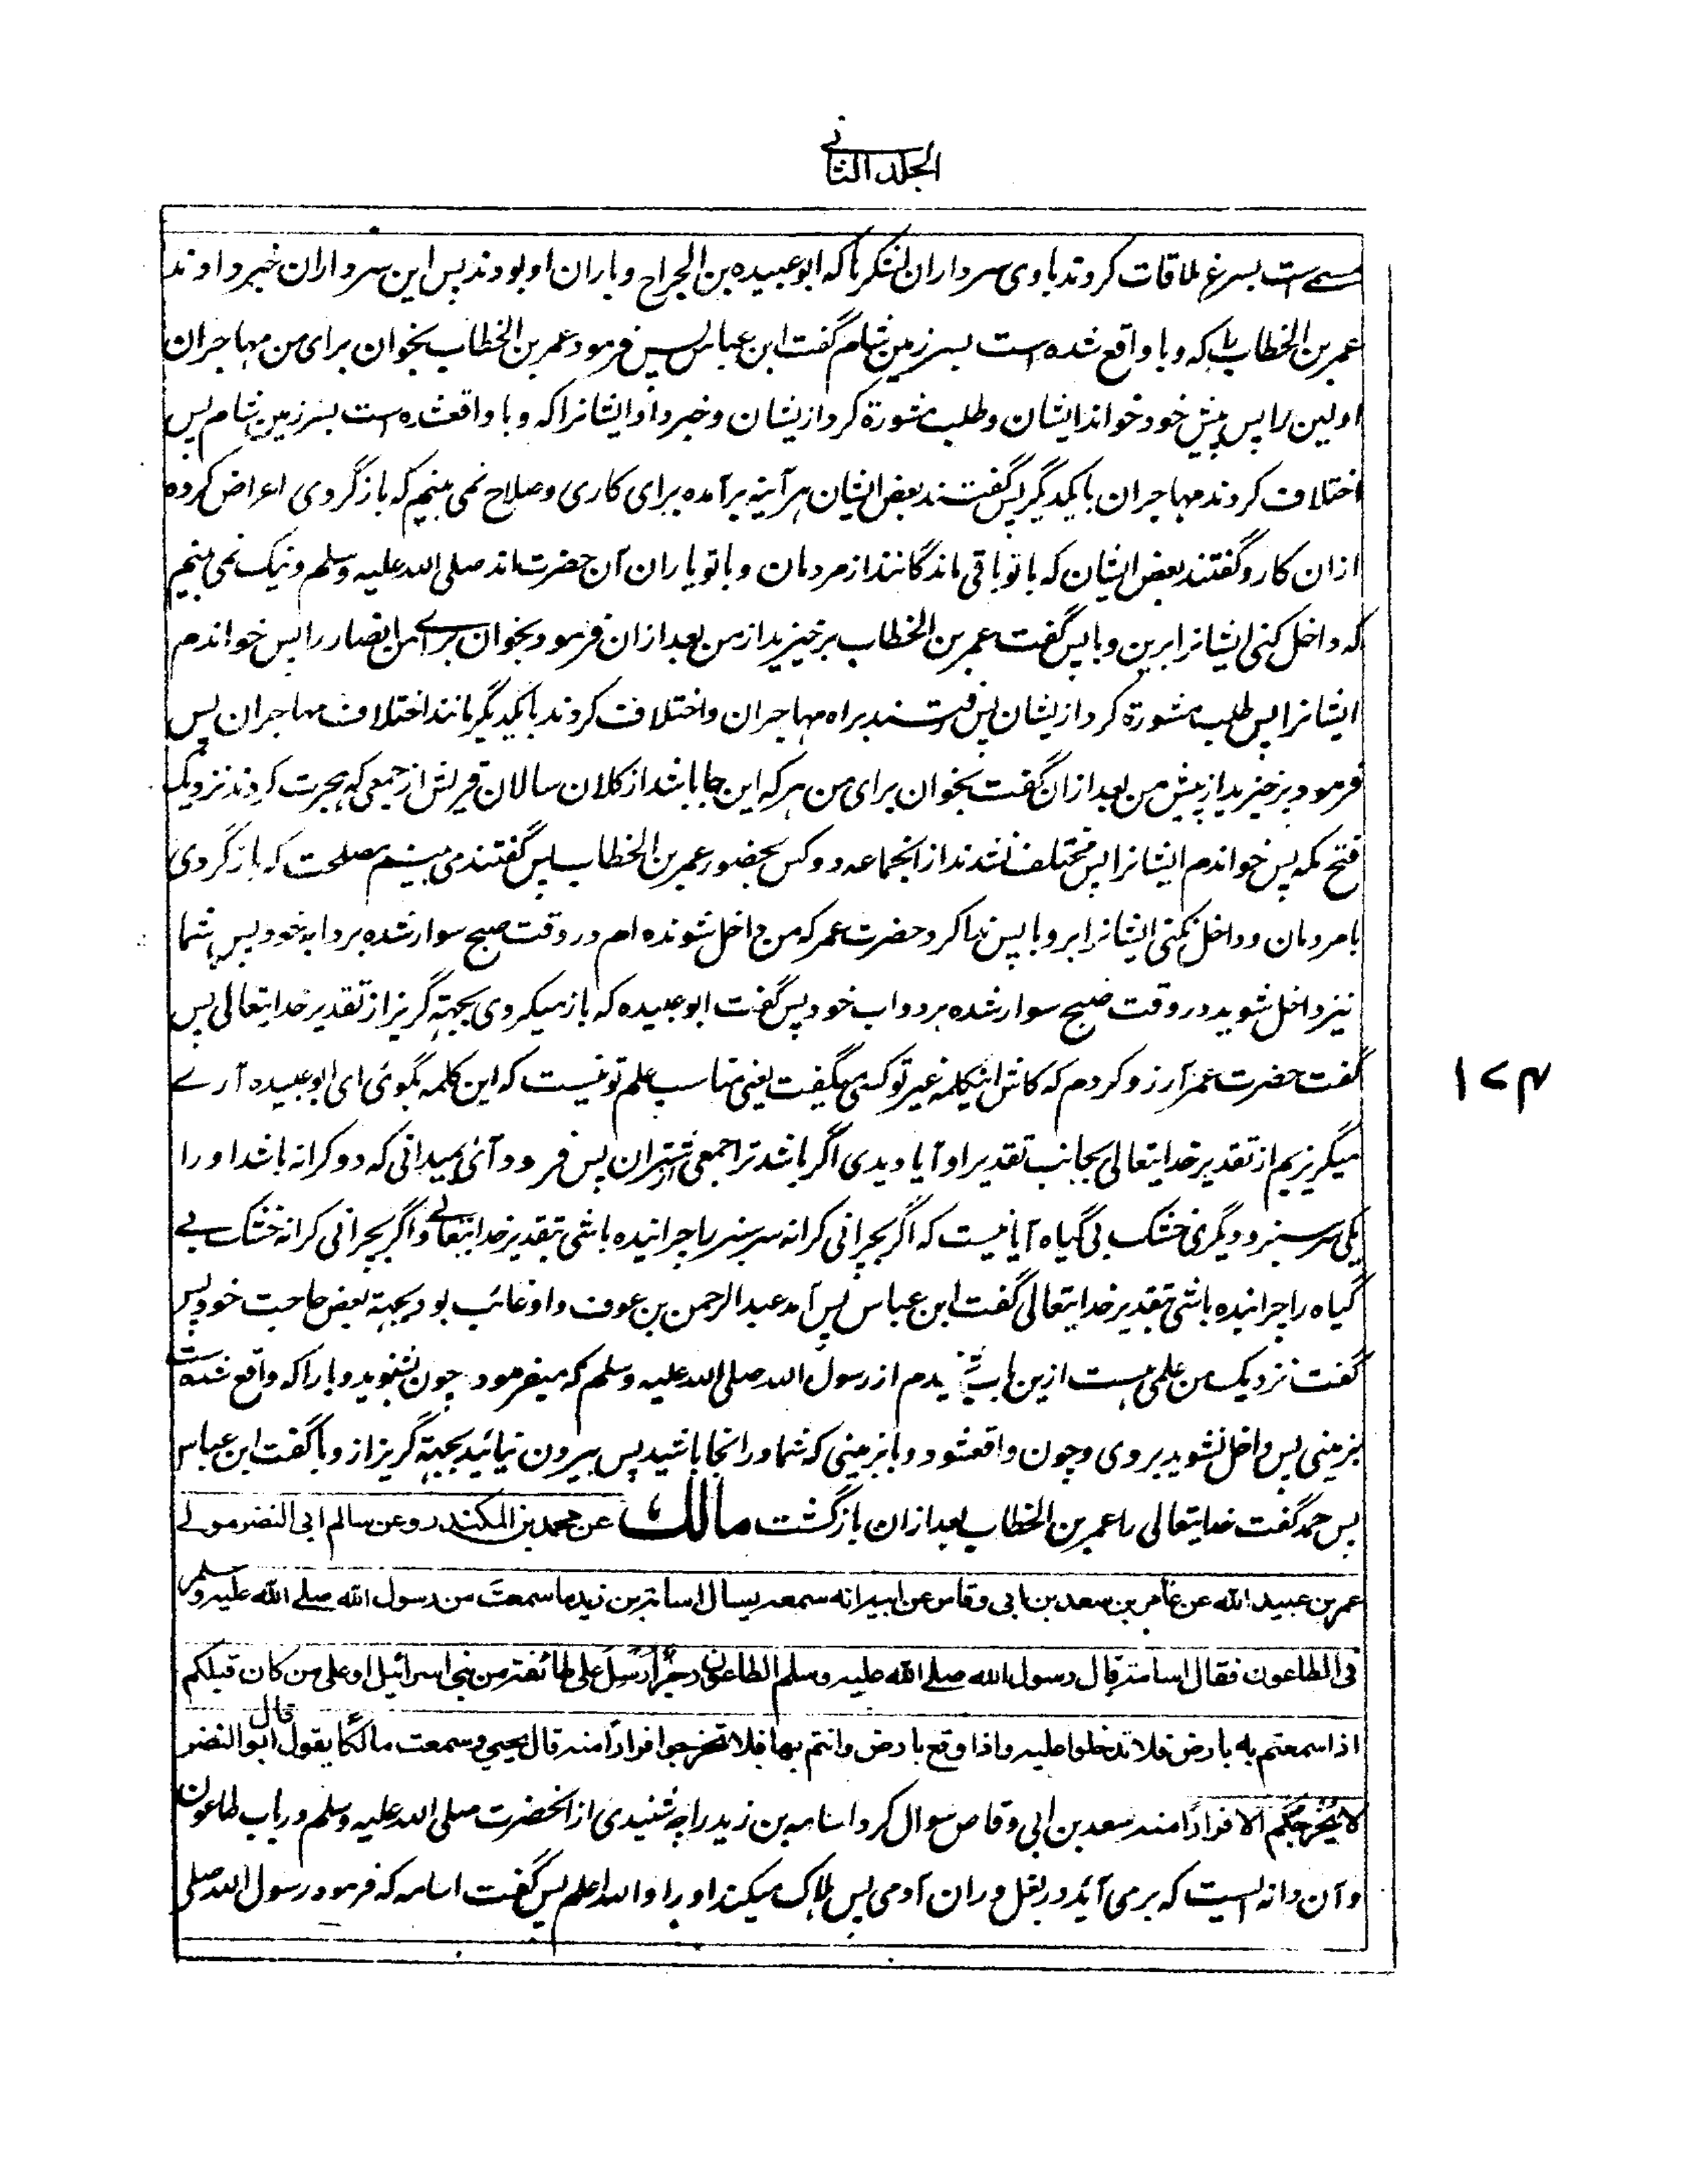 الجلد الثانے
مسمے است بسرغ ملاقات کردند با وی سرداران لشکرها که ابو عبیده بن الجراح و یاران او بودند پس این سرداران خبر دادند
عمر بن الخطاب را که وبا واقع شده است بسرزمین شام گفت ابن عباس پس فرمود عمر بن الخطاب بخوان برای من مهاجران
اولین را پس پیش خود خواند ایشان و طلب مشورة کرد ازیشان و خبر داد ایشانرا که وبا واقعشده است بسرزمین شام پس
اختلاف کردند مهاجران با یکدیگر پس گفتند بعض ایشان هر آینه برآمده برای کاری و صلاح نمی بینم که باز گردی اعراض کرده
ازان کار و گفتند بعض ایشان که با تو باقی ماندگانند از مردمان و با تو یاران آن حضرت اند صلی الله علیه وسلم و نیک نمی بینم
که داخل کنی ایشانرا برین وبا پس گفت عمر بن الخطاب برخیزید از من بعد ازان فرمود بخوان برای من انصار را پس خواندم
ایشانرا پس طلب مشورة کرد ازیشان پس رفتند براه مهاجران و اختلاف کردند با یکدیگر مانند اختلاف مهاجران پس
فرمود برخیزید از پیش من بعد ازان گفت بخوان برای من هر که این جا باشد از کلان سالان قریش از جمعی که هجرت کردند نزدیک
فتح مکه پس خواندم ایشانرا پس مختلف نشدند از انجماعه دو کس بحضور عمر بن الخطاب پس گفتند می بینیم مصلحت که باز گردی
با مردمان و داخل نکنی ایشانرا برو با پس ندا کرد حضرت عمر که من داخل شونده ام در وقت صبح سوار شده بر دابه خود پس شما
نیز داخل شوید در وقت صبح سوار شده بر دواب خود پس گفت ابو عبیده که باز میگردی بجهة گریز از تقدیر خدایتعالی پس
گفت حضرت عمر آرزو کردم که کاش اینکلمه غیر تو کسی میگفت یعنی مناسب علم تو نیست که این کلمه بگوئی ای ابو عبیده آرے
۱۷۴
میگریزیم از تقدیر خدایتعالی بجانب تقدیر او آیا دیدی اگر باشد ترا جمعی از شتران پس فرود آئی بمیدانی که دو کرانه باشد او را
یکی سرسبز و دیگری خشک بی گیاه آیا نیست که اگر بچرانی کرانه سرسبز را چرانیده باشی بتقدیر خدایتعالے و اگر بچرانی کرانه خشک بے
گیاه را چرانیده باشی بتقدیر خدایتعالی گفت ابن عباس پس آمد عبد الرحمن بن عوف و او غائب بود بجهة بعض حاجت خود پس
گفت نزدیک من علمی هست ازین باب شنیدم از رسول الله صلی الله علیه وسلم که میفرمود چون بشنوید وبا را که واقع شده است
بزمینی پس داخل نشوید بر وی و چون واقعشود وبا بزمینی که شما در انجا باشید پس بیرون نیائید بجهة گریز از وبا گفت ابن عباس
پس حمد گفت خدایتعالی را عمر بن الخطاب بعد ازان باز گشت مالك عن محمد بن المنکدر وعن سالم ابی النضر مولے
عمر بن عبید الله عن عامر بن سعد بن ابی وقاص عن ابیه انه سمعه یسال اسامة بن زید ما سمعت من رسول الله صلے الله علیه وسلم
فی الطاعون فقال اسامة قال رسول الله صلے الله علیه وسلم الطاعون رجز ارسل علی طائفة من بنی اسرائیل او علی من کان قبلکم
اذا سمعتم به بارض فلا تدخلوا علیه واذا وقع بارض وانتم بها فلا تخرجوا فرارا منه قال یحیی وسمعت مالکا یقول قال ابو النضر
لا یخرجکم الا فرارا منه سعد بن ابی وقاص سوال کرد اسامه بن زید را چه شنیدی از انحضرت صلی الله علیه وسلم در باب طاعون
و آن دانه ایست که برمی آید در بغل و ران آدمی پس هلاک میکند او را والله اعلم پس گفت اسامه که فرمود رسول الله صلی